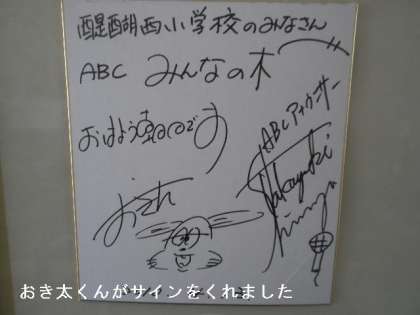 醍醐西小学校のみなさん
ABC みんなの木
おはよう朝日です
ABCアナウンサー
Takayuki
おき太
おき太くんがサインをくれました